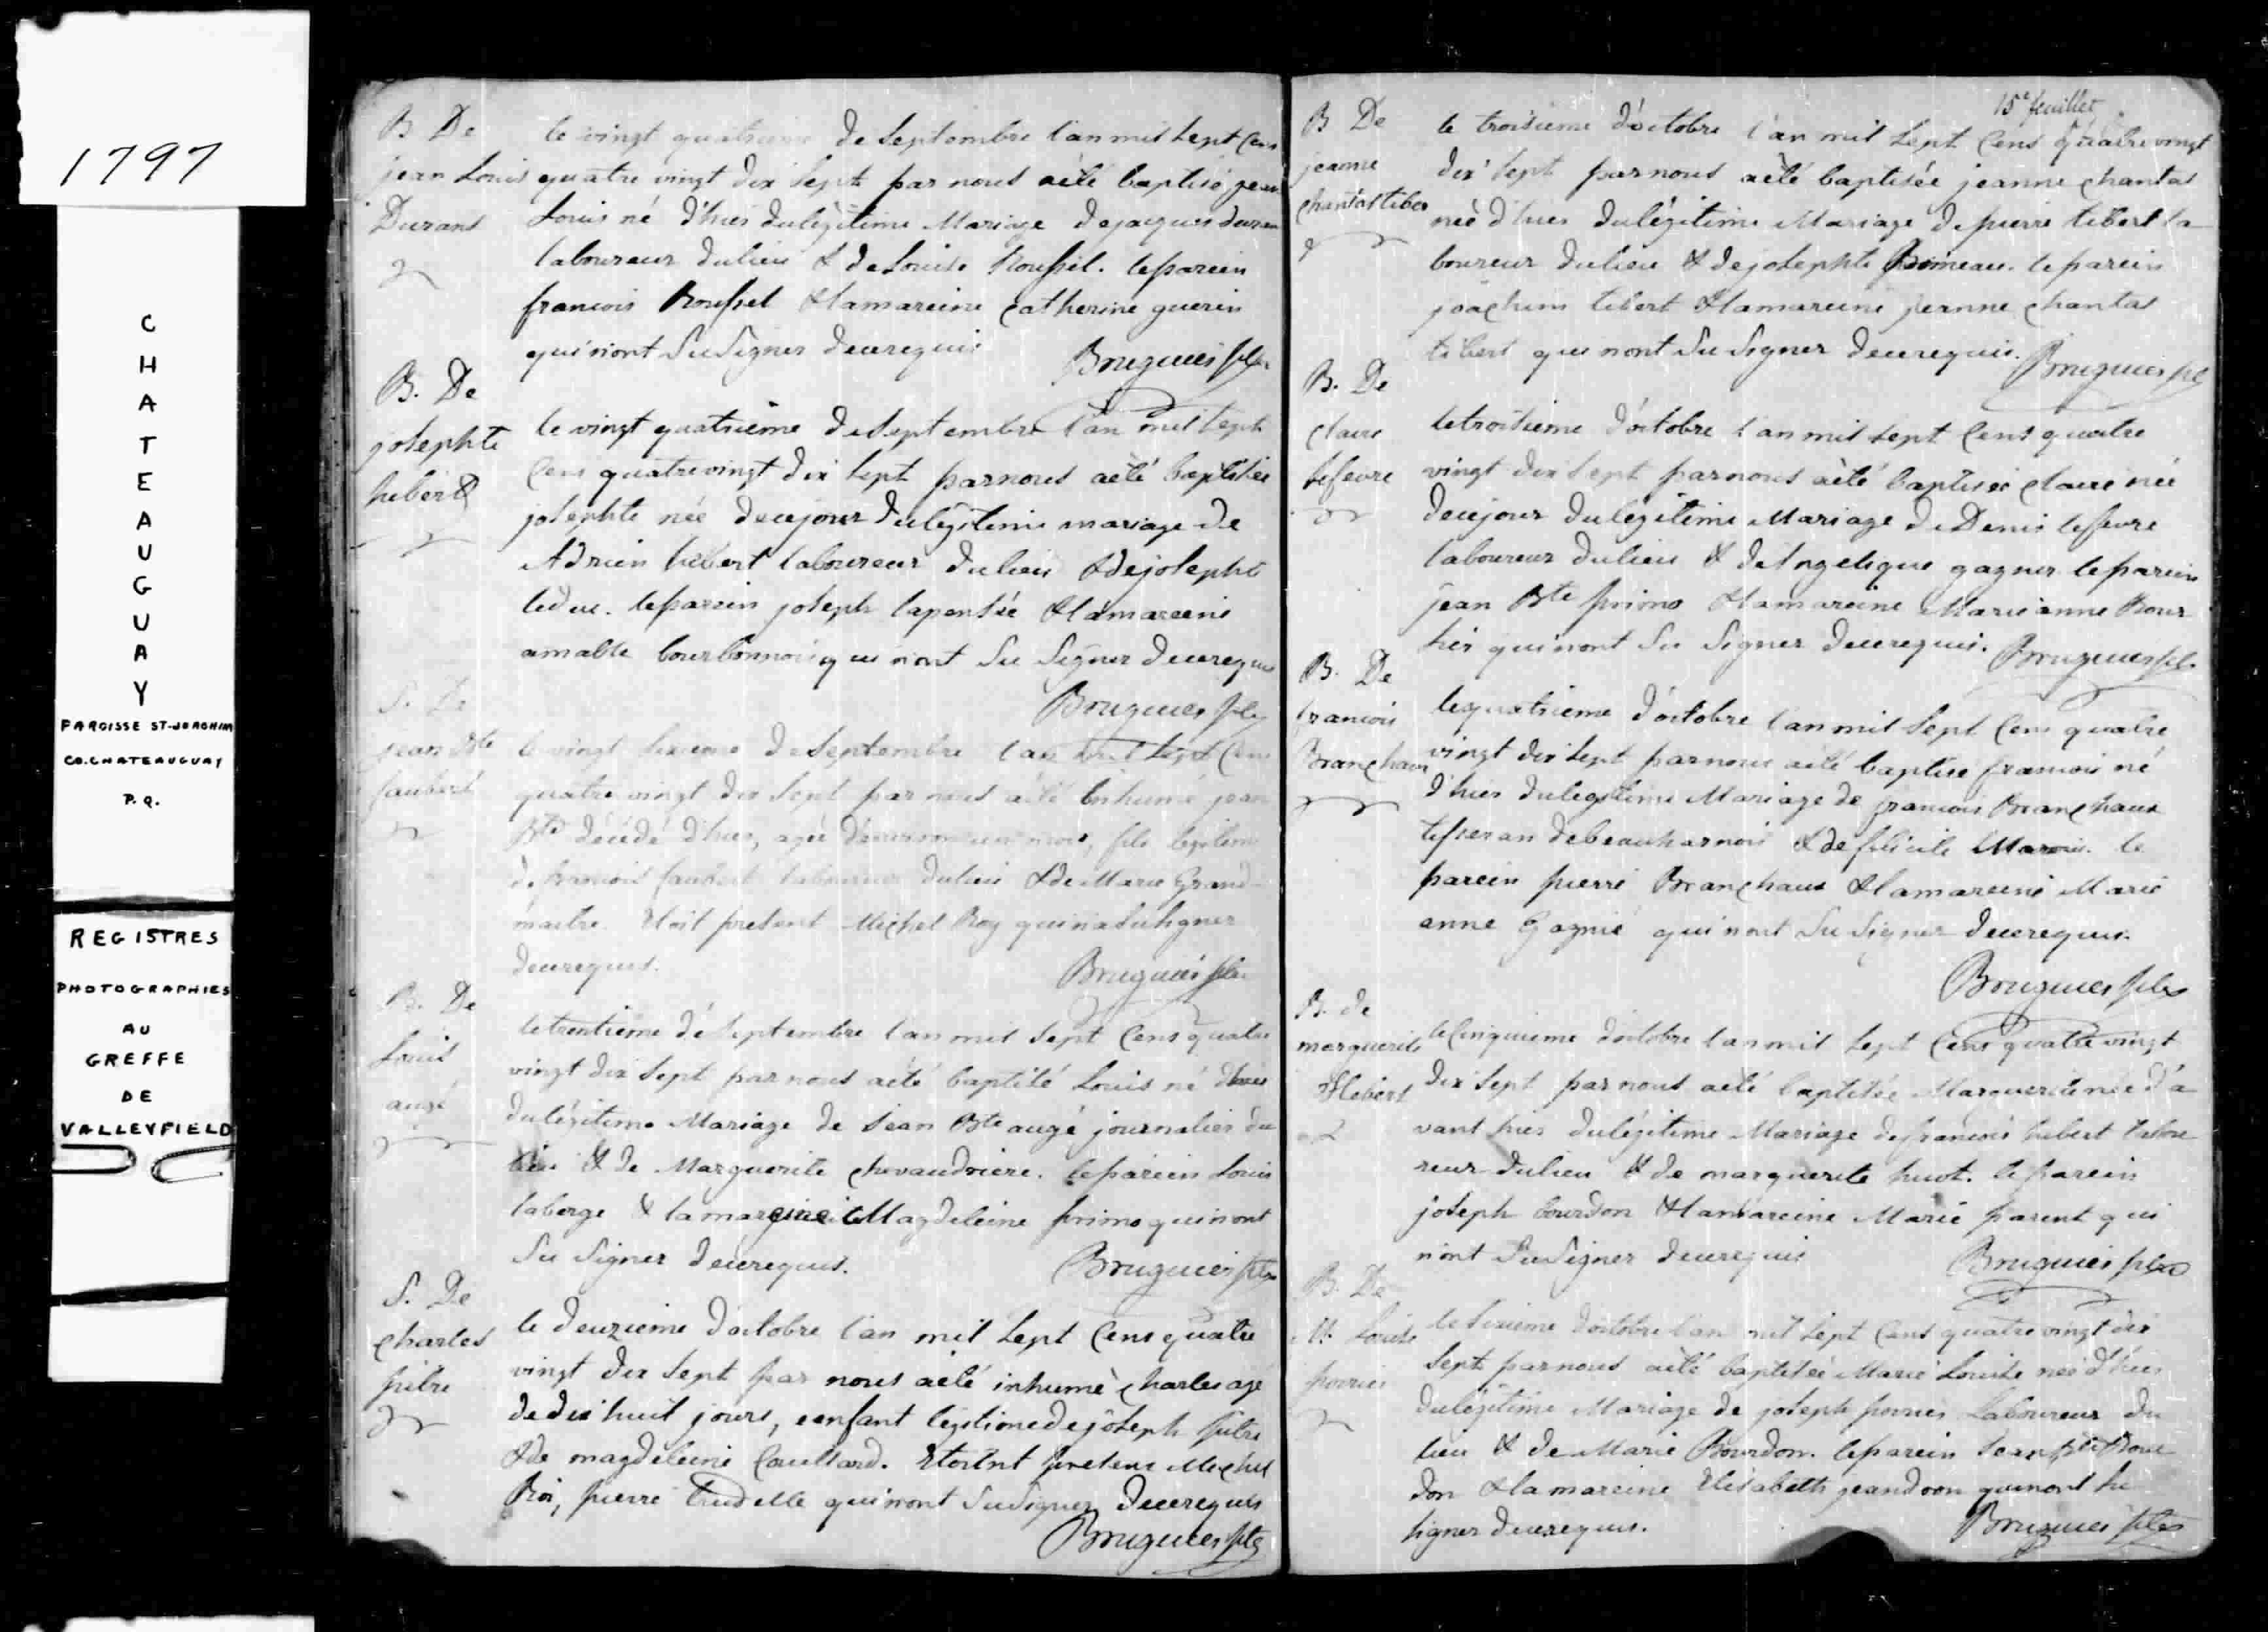 1797
CHATEAUGUAY
PAROISSE ST-JOACHIM
CO. CHATEAUGUAY
P.Q.
REGISTRES
PHOTOGRAPHIES
AU
GREFFE
DE
VALLEYFIELD
B De
jean Louis
Durant
le vingt quatrieme de Septembre l'an mil Sept Cens
quatre vingt dix Sept par nous aèté baptisé jean
Louis né d'hier du légitime Mariage de jacques duran
laboureur du lieu & de Louise Roussel. le parein
francois Roussel & la mareine Catherine guerin
qui n'ont Su Signer de ce requis
Bruguier ptre
B. De
josephte
hebert
le vingt quatrieme de Septembre l'an mil Sept
Cens quatre vingt dix Sept par nous aèté baptisée
josephte née de ce jour du légitime mariage de
Adrien hebert laboureur du lieu & de josephte
leduc. le parein joseph lapensée & la mareine
amable bourbonnois qui n'ont Su Signer de ce requis
Bruguier ptre
S. De
jean Bte
faubert
le vingt Sixieme de Septembre l'an mil Sept Cens
quatre vingt dix Sept par nous aèté inhumé jean
Bte décédé d'hier, agé d'environ mois, fils legitime
de francois faubert laboureur du lieu & de Marie Grand-
maitre. Etoit present Michel Roy qui n'a Su signer
de ce requis.
Bruguier ptre
B. De
Louis
augé
le trentieme de Septembre l'an mil Sept Cens quatre
vingt dix Sept par nous aèté baptisé Louis né d'hier
du légitime Mariage de Jean Bte augé journalier du
lieu & de Marguerite chevaudriere. le parein Louis
laberge & la mareine Magdeleine primo qui n'ont
Su Signer de ce requis.
Bruguier ptre
S. De
charles
pitre
le deuzieme d'octobre l'an mil Sept Cens quatre
vingt dix Sept par nous aèté inhumé charles agé
de dix huit jours, enfant légitime de joseph pitre
& de magdeleine Couillard. Etoient presens Michel
Roi, pierre Trudelle qui n'ont Su Signer de ce requis
Bruguier ptre
15e feuillet
B De
jeanne
chantas tiber
le troisieme d'octobre l'an mil Sept Cens quatre vingt
dix Sept par nous aèté baptisée jeanne chantas
neè d'hier du légitime Mariage de pierre tibert la-
boureur du lieu & de josephte primeau. le parein
joachim tibert & la mareine jeanne chantas
tibert qui n'ont Su Signer de ce requis.
Bruguier ptre
B. De
claire
lefevre
le troisieme d'octobre l'an mil Sept Cens quatre
vingt dix Sept par nous aèté baptisée claire née
de ce jour du légitime Mariage de Denis lefevre
laboureur du lieu & de Angelique gagner le parein
jean Bte primo & la mareine Marie anne Bour
hier qui n'ont Su Signer de ce requis.
Bruguier ptre
B. De
francois
Branchaux
le quatrieme d'octobre l'an mil Sept Cens quatre
vingt dix Sept par nous aèté baptisé francois né
d'hier du legitime Mariage de francois Branchaux
tisseran de beauharnois & de félicité Marois. le
parein pierre Branchaux & la mareine Marie
anne Gagnié qui n'ont Su Signer de ce requis.
Bruguier ptre
B. de
marguerite
Hebert
le Cinquieme d'octobre l'an mil Sept Cens quatre vingt
dix Sept par nous aèté baptisée Marguerite née d'a
vant hier du légitime Mariage de francois hebert labou
reur du lieu & de marguerite huot. le parein
joseph bourdon & la mareine Marie parent qui
n'ont Su Signer de ce requis
Bruguier ptre
B. De
M. Louise
poirier
le Sixieme d'octobre l'an mil Sept Cens quatre vingt dix
Sept par nous aèté baptisée Marie Louise née d'hier
du légitime Mariage de joseph poirier Laboureur du
lieu & de Marie Bourdon. le parein Jean Bte Bour
don & la mareine Elisabeth jeandron qui n'ont Su
signer de ce requis.
Bruguier ptre